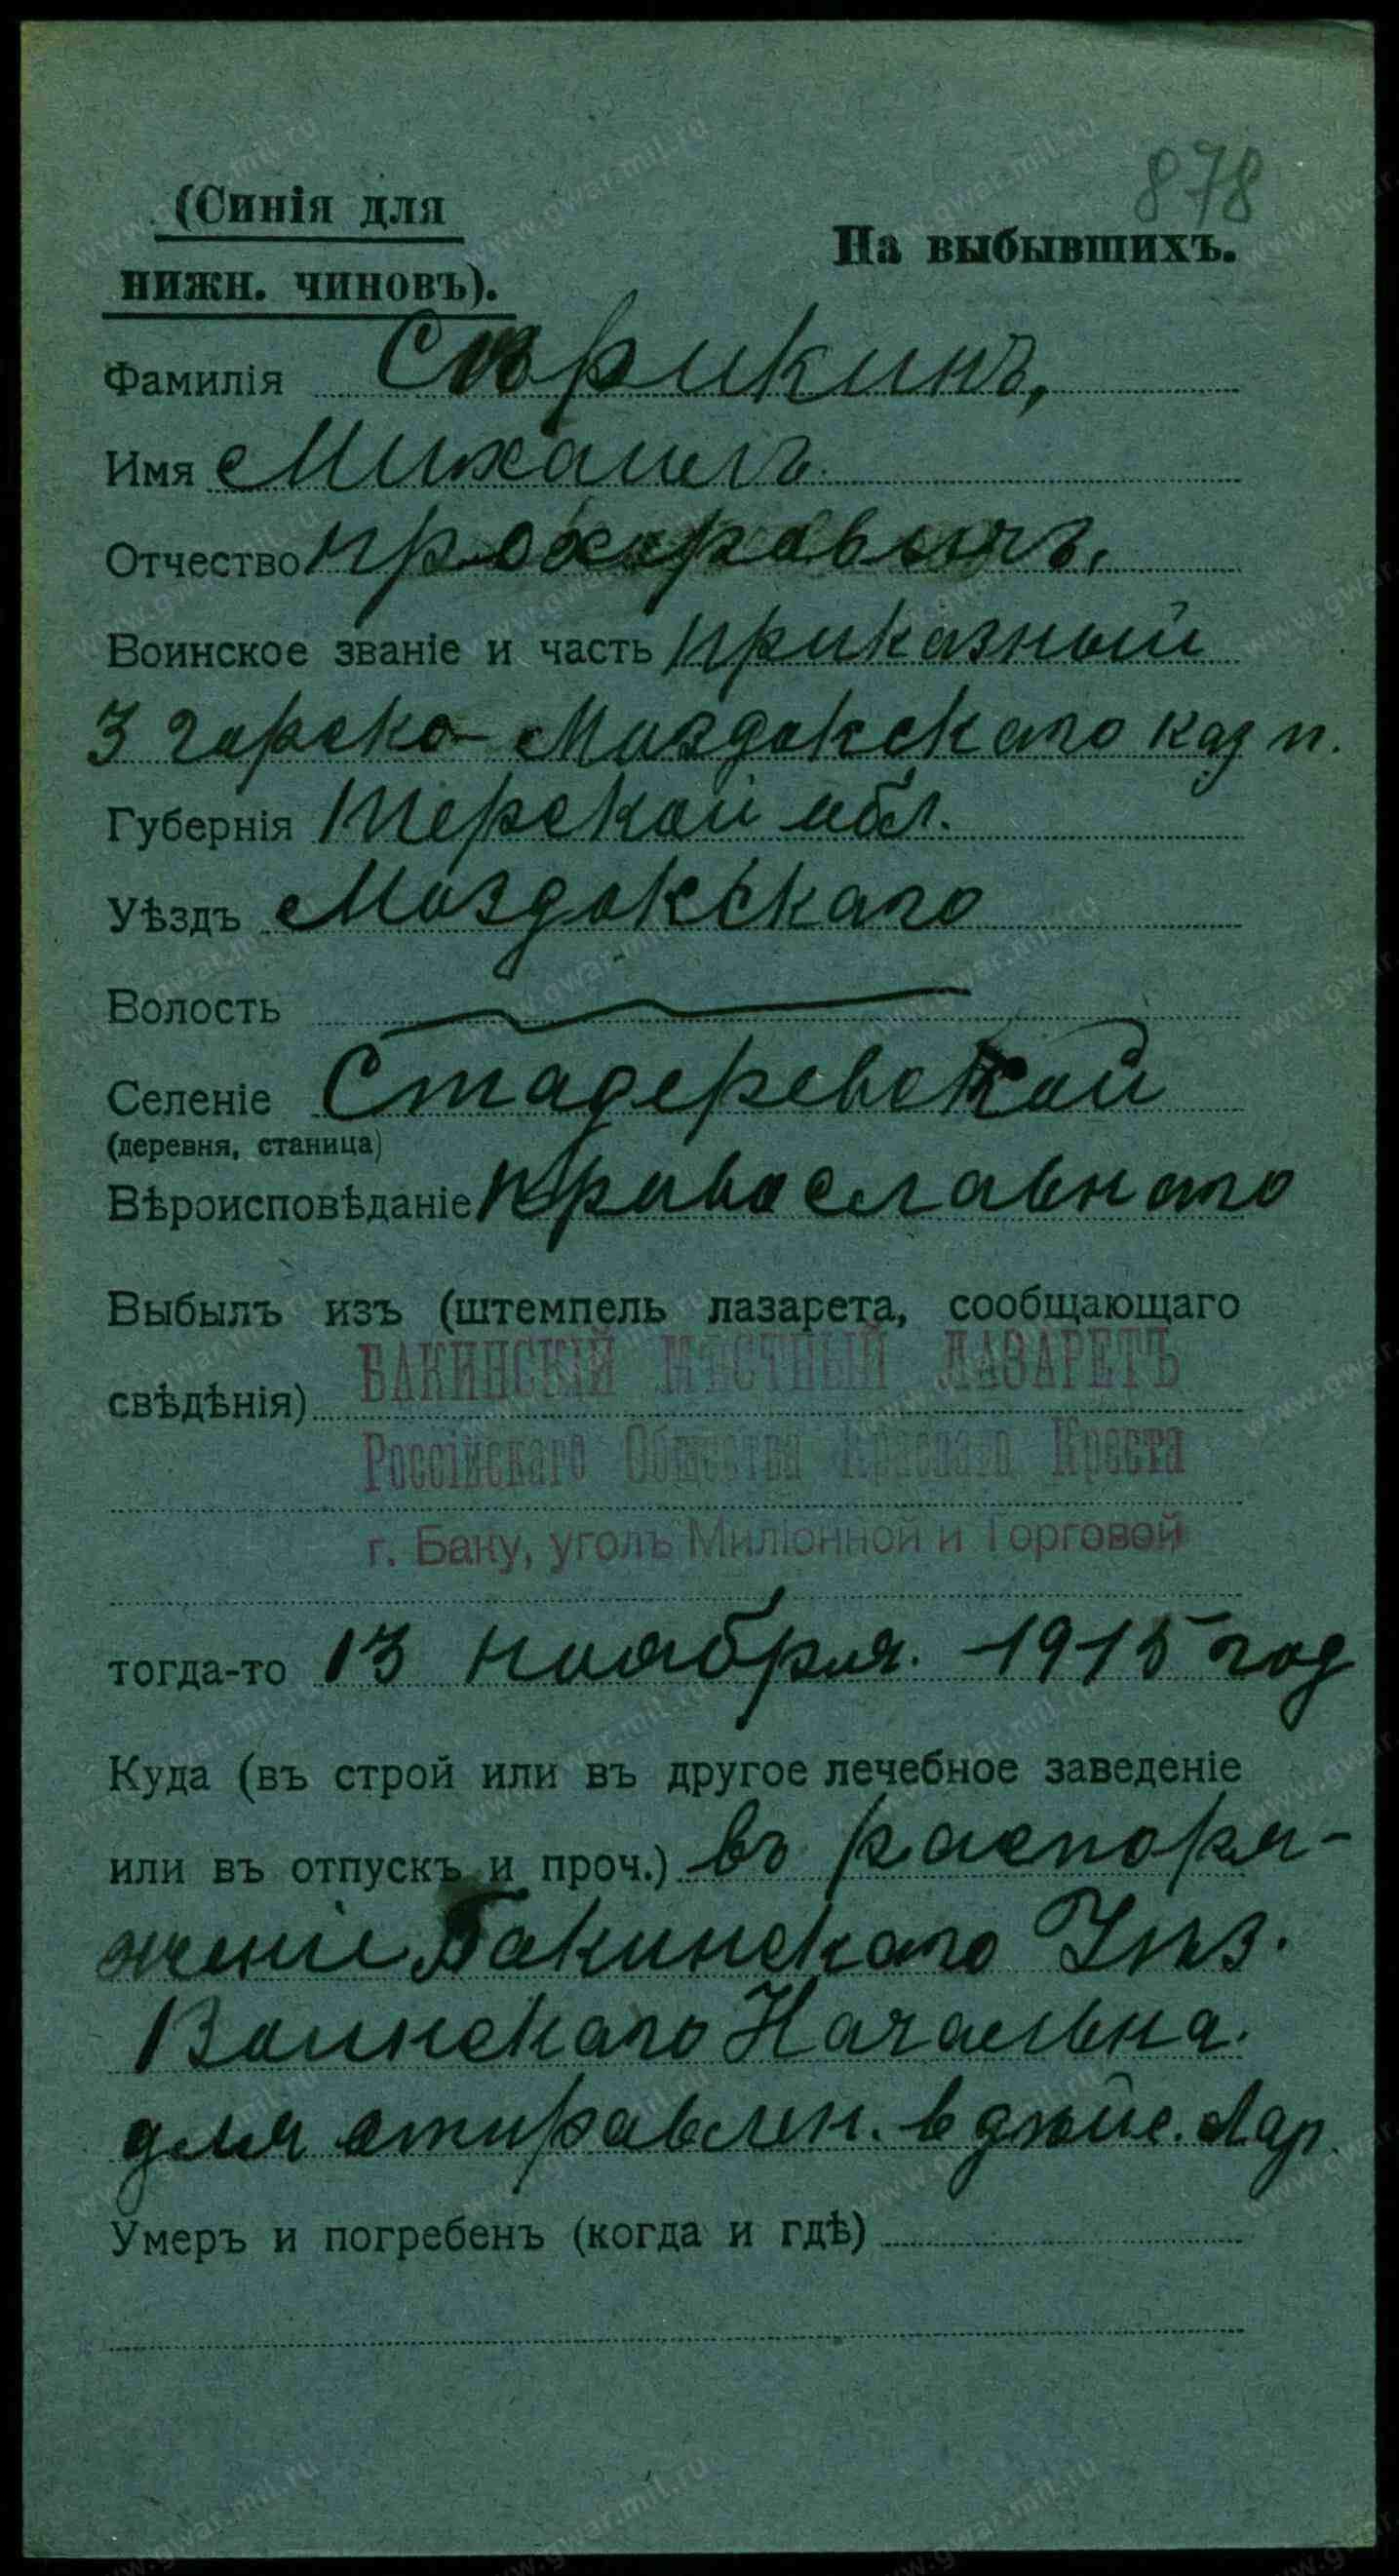 878
(Синія для
На выбывшихъ.
нижн. чиновъ).
Фамилія Сѣрикинъ,
Имя Михаилъ
Отчество Прохоровичъ,
Воинское званіе и часть Приказный
3 Горско-Моздокскаго каз п.
Губернія Терской обл.
Уѣздъ Моздокскаго
Волость
Селеніе Стадеревской
(деревня, станица)
Вѣроисповѣданіе Православнаго
Выбылъ изъ (штемпель лазарета, сообщающаго
БАКИНСКІЙ МѢСТНЫЙ ЛАЗАРЕТЪ
свѣдѣнія)
Россійскаго Общества Краснаго Креста
г. Баку, уголъ Миліонной и Торговой
тогда-то 13 ноября. 1915 год
Куда (въ строй или въ другое лечебное заведеніе
или въ отпускъ и проч.) въ распоря-
женіе Бакинскаго Уѣз.
Воинскаго Начальна.
для отправлен. в дѣйс. Ар.
Умеръ и погребенъ (когда и гдѣ)
www.gwar.mil.ru